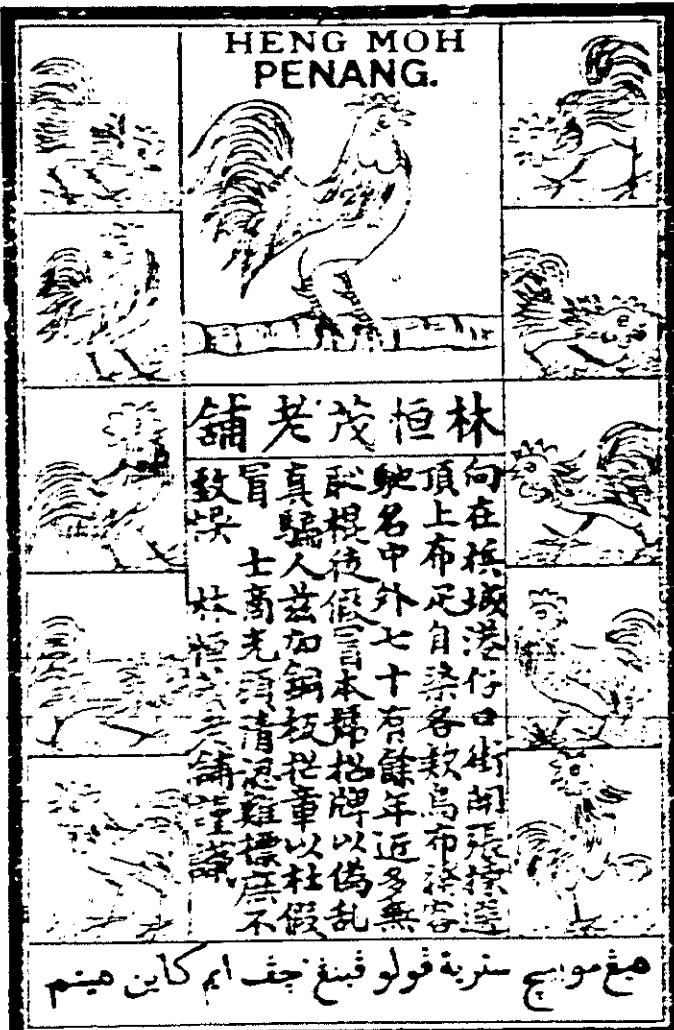 HENG MOH
PENANG.
林恒茂老舖
向在檳城港仔口街開張揀選
頂上布疋自染各款烏布發客
馳名中外七十有餘年近多無
恥棍徒假冒本號招牌以偽乱
真騙人茲加銅板招章以杜假
冒 士商光須清認雞標庶不
致悞 林恒茂老舖謹識
هيڠ مو سريبة ڤولو ڤينڠ چڤ ايم کاين هيتم